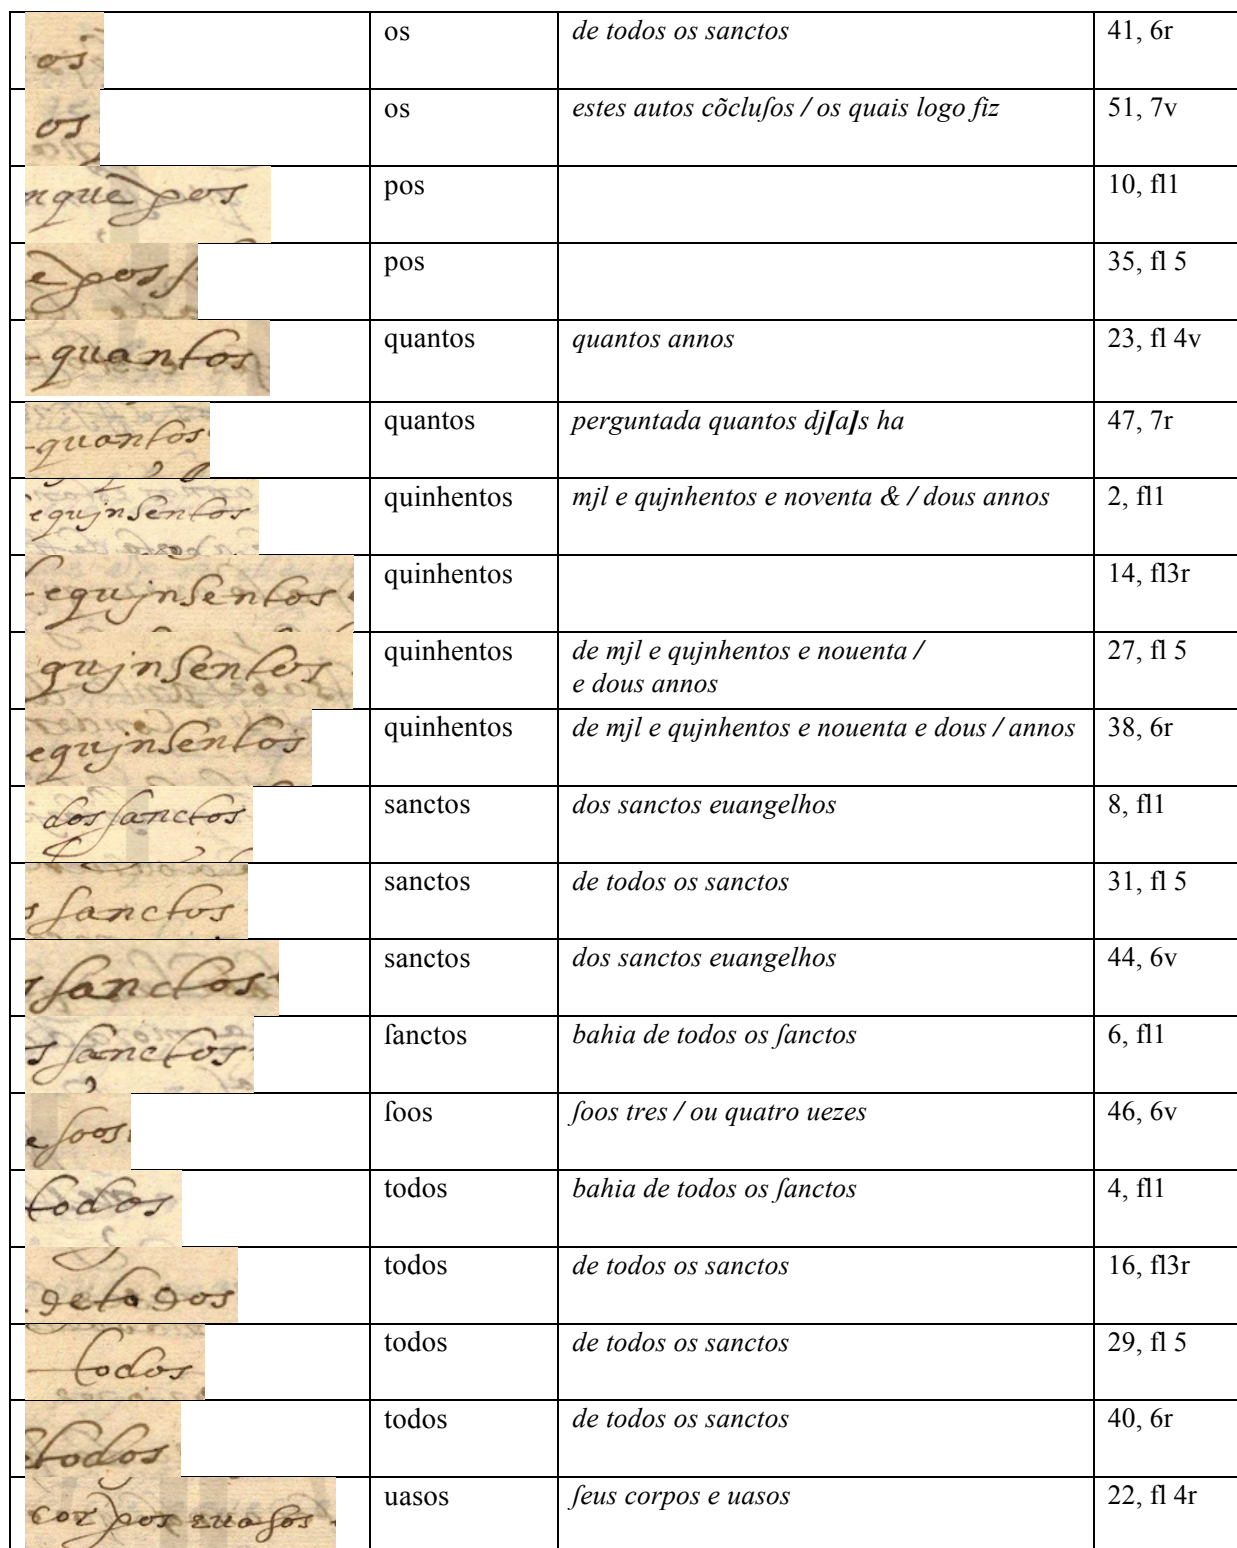 os os de todos os sanctos 41, 6r
os os estes autos cõcluſos / os quais logo fiz 51, 7v
nque pos pos 10, fl1
e poss pos 35, fl 5
quantos quantos quantos annos 23, fl 4v
quantos quantos perguntada quantos dj[a]s ha 47, 7r
equjnhentos quinhentos mjl e qujnhentos e noventa & / dous annos 2, fl1
equjnhentos quinhentos 14, fl3r
qujnhentos quinhentos de mjl e qujnhentos e nouenta / 27, fl 5
e dous annos
equjnhentos quinhentos de mjl e qujnhentos e nouenta e dous / annos 38, 6r
dos sanctos sanctos dos sanctos euangelhos 8, fl1
s ſanctos sanctos de todos os sanctos 31, fl 5
s ſanctos sanctos dos sanctos euangelhos 44, 6v
s ſanctos ſanctos bahia de todos os ſanctos 6, fl1
e ſoos ſoos ſoos tres / ou quatro uezes 46, 6v
todos todos bahia de todos os ſanctos 4, fl1
de todos todos de todos os sanctos 16, fl3r
todos todos de todos os sanctos 29, fl 5
todos todos de todos os sanctos 40, 6r
corpos e uasos uasos ſeus corpos e uasos 22, fl 4r